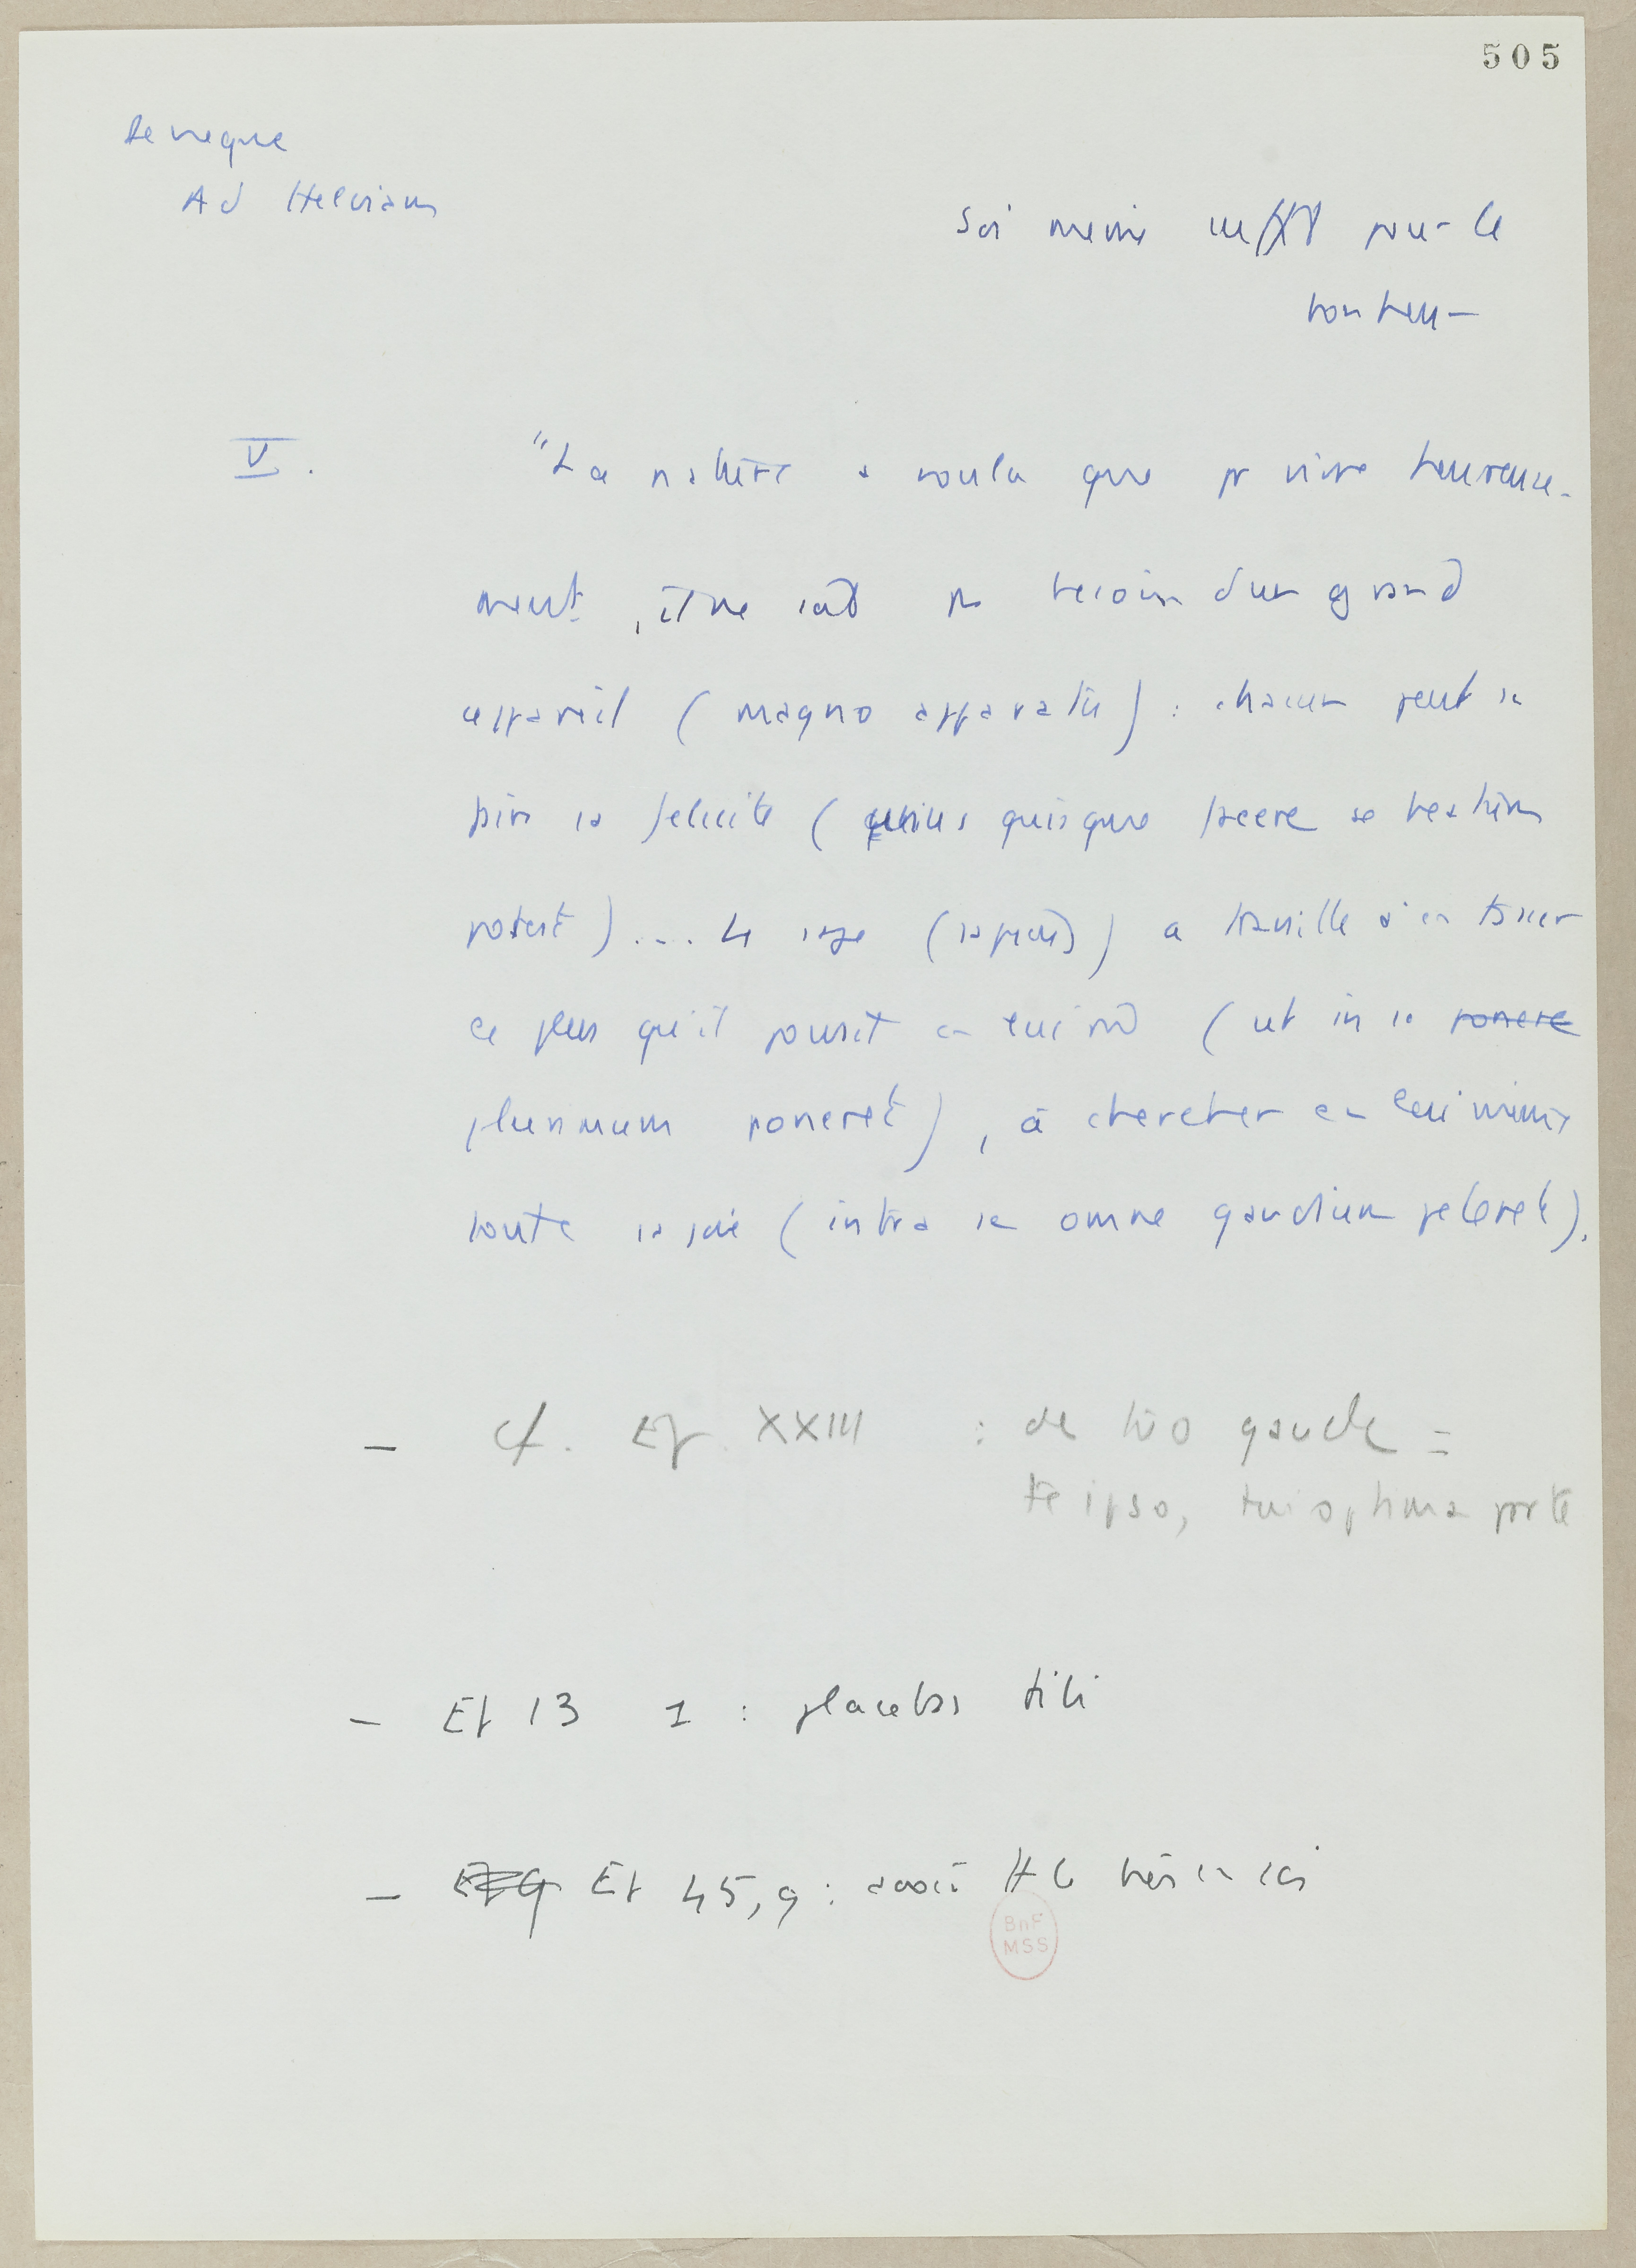 505
Seneque
Ad Helviam
Soi meme suffit pour le
bonheur
V.
"La nature a voulu que pr vivre heureuse-
ment, il ne soit pas besoin d'un grand
appareil (magno apparatu) : chacun peut se
faire sa felicite (unus quisque facere se beatum
potest)... Le sage (sapiens) a travaillé à en placer
le plus qu'il pouvait en lui mm (ut in se ponere
plurimum poneret), à chercher en lui même
toute sa joie (intra se omne gaudium peteret).
- cf. Ep. XXIII : de tuo gaude =
te ipso, tui optima parte
- Ep 13 1 : placebas tibi
- Ep 45, 9 : avoir
BnF
MSS